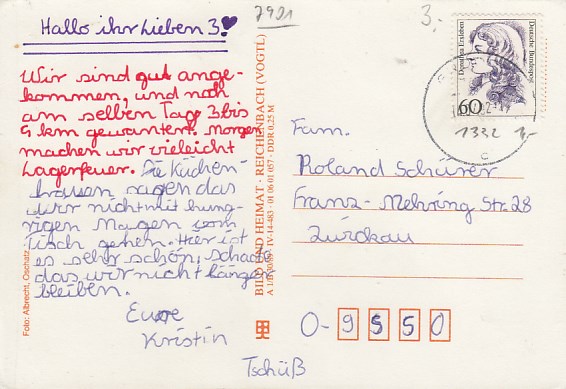 Hallo ihr Lieben 3!
Wir sind gut ange-
kommen, und noch
am selben Tag 3 bis
4 km gewantert. Morgen
machen wir vieleicht
Lagerfeuer. Die Küchen-
frauen sagen das
wir nicht mit hung-
rigen Magen vom
Tisch gehen. Hier ist
es sehr schön, schade
das wir nicht länger
bleiben.
Eure
Kristin
Tschüß
7921
3,-
Dorothea Erxleben
Deutsche Bundespost
60
1332 1,-
c
Fam.
Roland Schürer
Franz-Mehring Str. 28
Zwickau
O-9550
BILD UND HEIMAT · REICHENBACH (VOGTL)
IV-14-483 · 01 06 01 057 · DDR 0,25 M
Foto: Albrecht, Oschatz